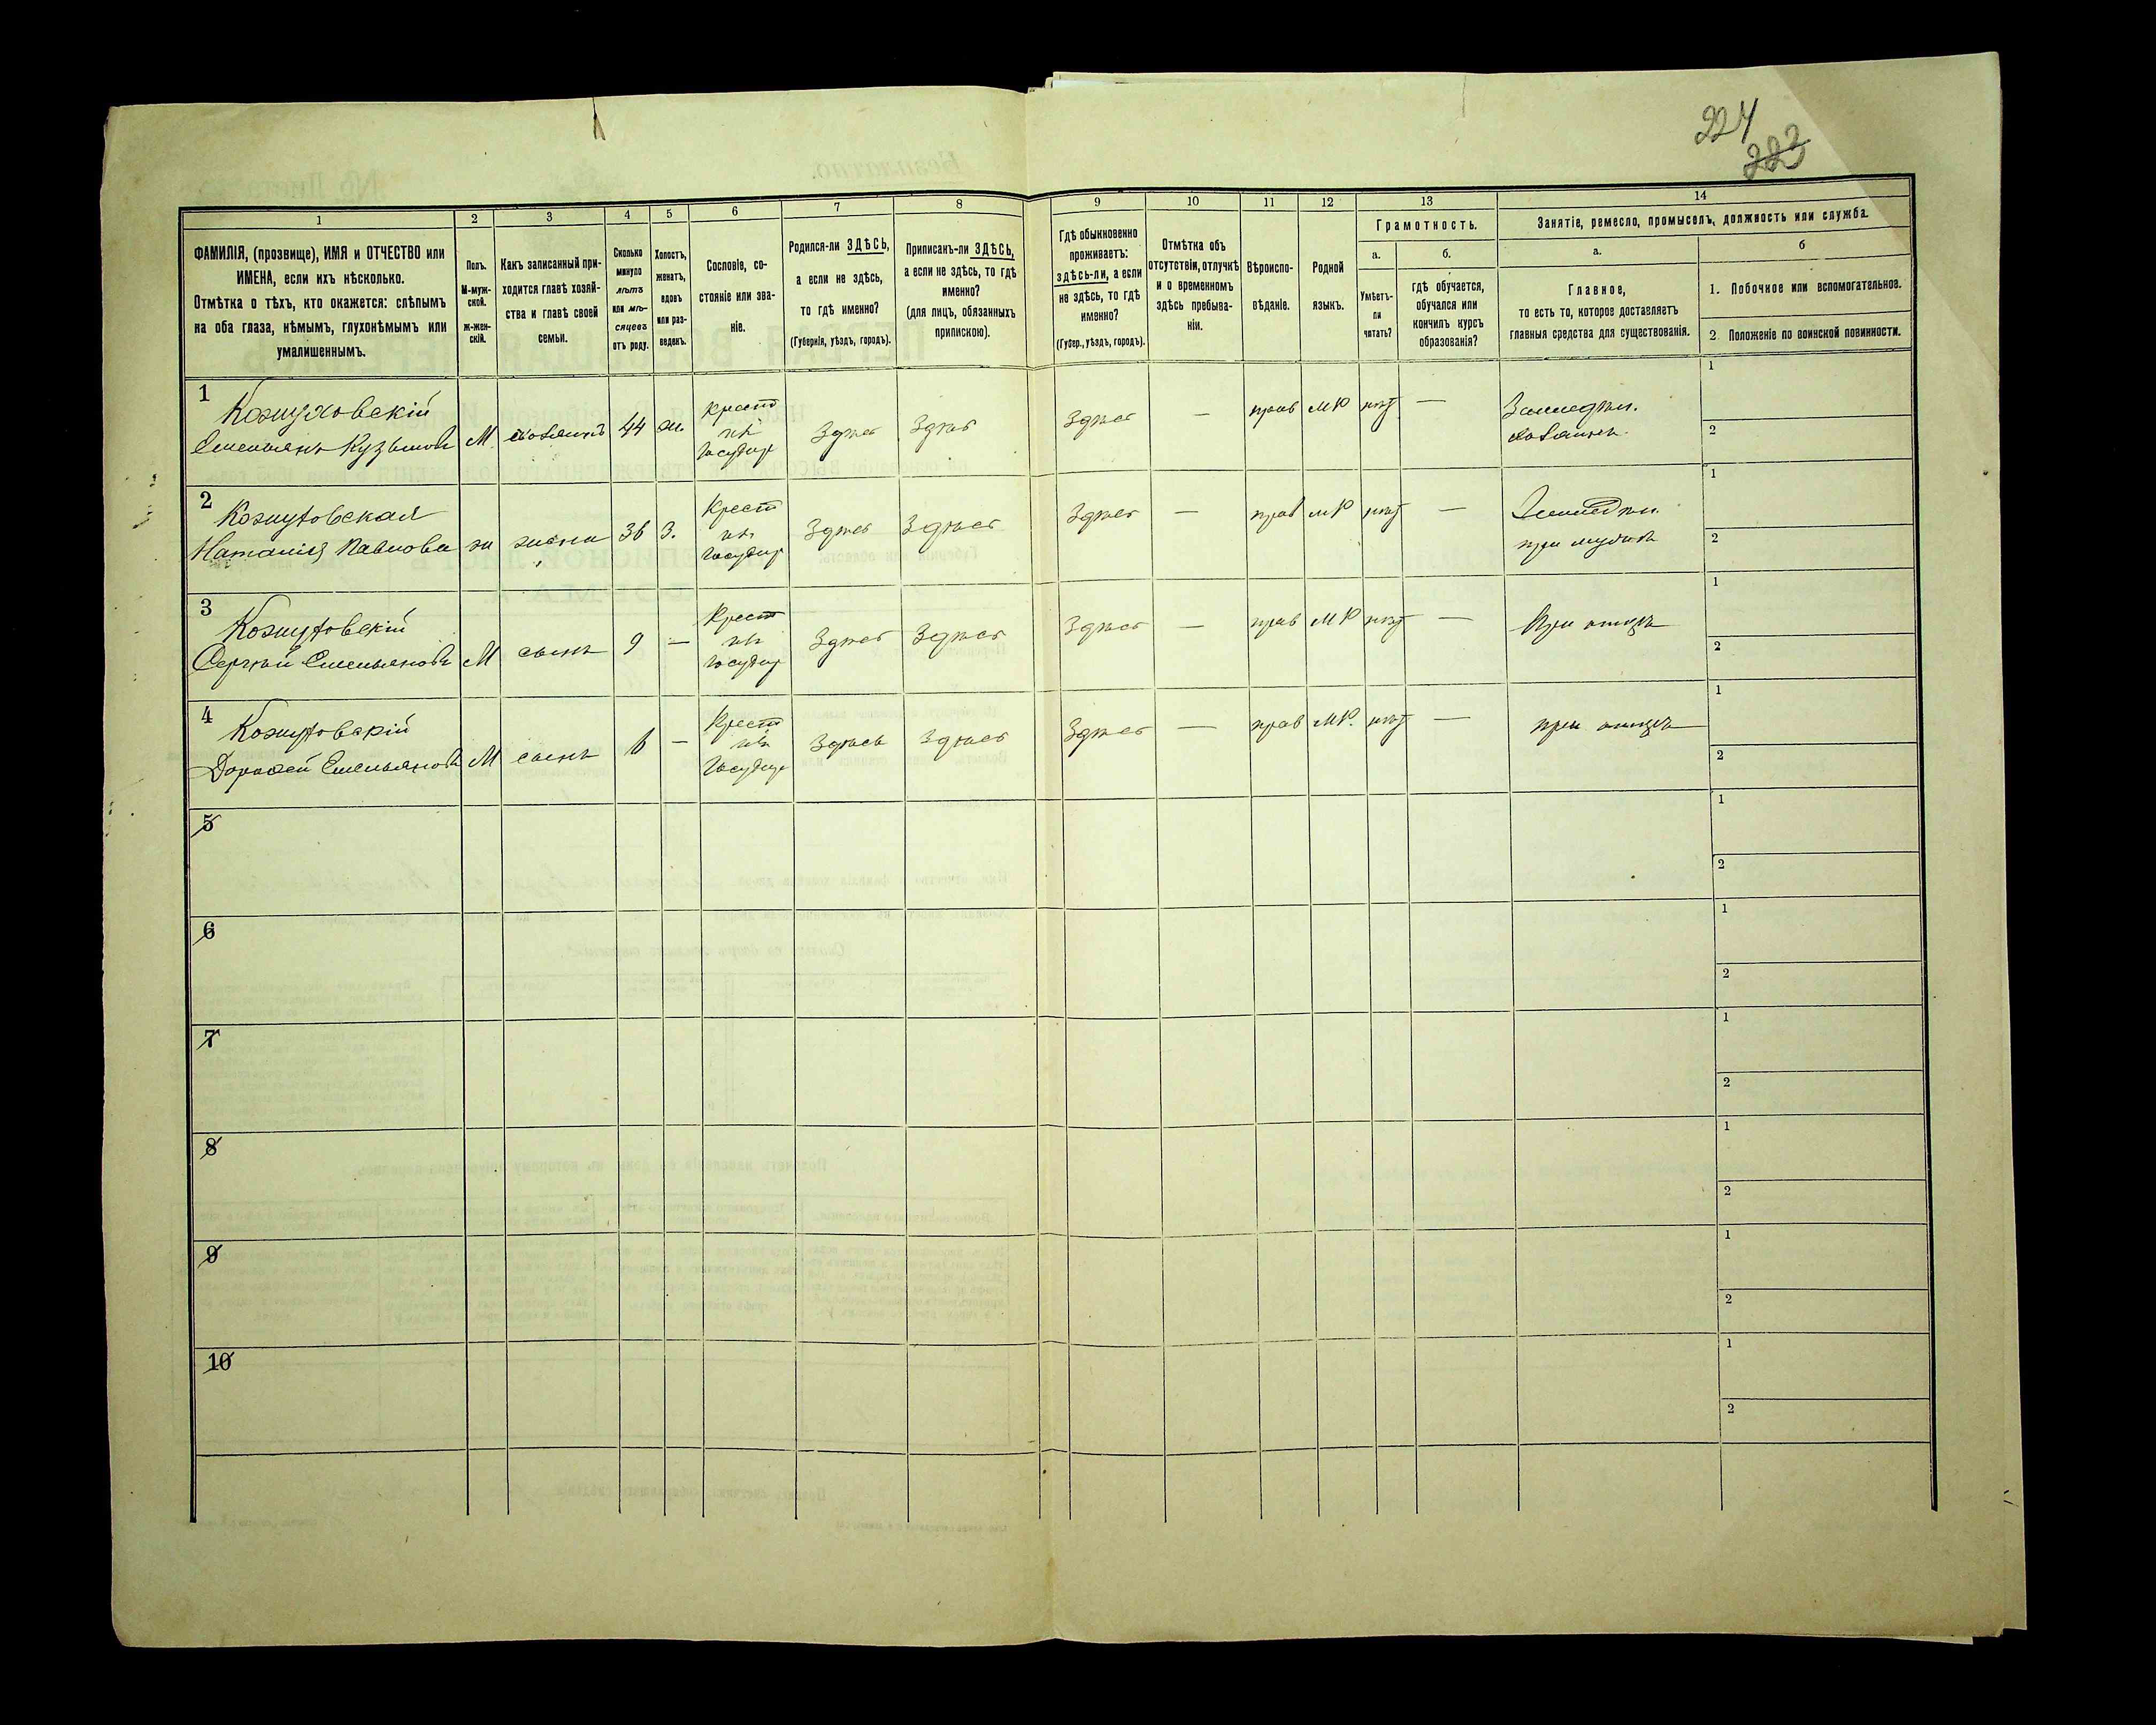 224
223
1
2
3
4
5
6
7
8
9
10
11
12
13
14
ФАМИЛІЯ, (прозвище), ИМЯ и ОТЧЕСТВО или
ИМЕНА, если ихъ нѣсколько.
Отмѣтка о тѣхъ, кто окажется: слѣпымъ
на оба глаза, нѣмымъ, глухонѣмымъ или
умалишеннымъ.
Полъ.
М-муж-
ской.
ж-жен-
скій.
Какъ записанный при-
ходится главѣ хозяй-
ства и главѣ своей
семьи.
Сколько
минуло
лѣтъ
или мѣ-
сяцевъ
отъ роду.
Холостъ,
женатъ,
вдовъ
или раз-
веденъ.
Сословіе, со-
стояніе или зва-
ніе.
Родился-ли ЗДѢСЬ,
а если не здѣсь,
то гдѣ именно?
(Губернія, уѣздъ, городъ).
Приписанъ-ли ЗДѢСЬ,
а если не здѣсь, то гдѣ
именно?
(для лицъ, обязанныхъ
припискою).
Гдѣ обыкновенно
проживаетъ:
здѣсь-ли, а если
не здѣсь, то гдѣ
именно?
(Губер., уѣздъ, городъ).
Отмѣтка объ
отсутствіи, отлучкѣ
и о временномъ
здѣсь пребыва-
ніи.
Вѣроиспо-
вѣданіе.
Родной
языкъ.
Грамотность.
а.
Умѣетъ-
ли
читать?
б.
гдѣ обучается,
обучался или
кончилъ курсъ
образованія?
Занятіе, ремесло, промыселъ, должность или служба.
а.
Главное,
то есть то, которое доставляетъ
главныя средства для существованія.
б
1. Побочное или вспомогательное.
2. Положеніе по воинской повинности.
1
Кожуховскій
Емельянъ Кузьмовъ
М.
хозяинъ
44
ж.
Крест
изъ
Государ
Здѣсь
Здѣсь
Здѣсь
—
прав
МР
нѣт
—
Земледѣл.
хозяинъ
1
2
2
Кожуховская
Наталія Павлова
ж
жена
36
З.
Крест
изъ
Государ
Здѣсь
Здѣсь
Здѣсь
—
прав
МР
нѣт
—
Земледѣл.
при мужѣ
1
2
3
Кожуховскій
Сергѣй Емельяновъ
М
сынъ
9
—
Крест
изъ
Государ
Здѣсь
Здѣсь
Здѣсь
—
прав
МР
нѣт
—
При отцѣ
1
2
4
Кожуховскій
Дорофей Емельяновъ
М
сынъ
6
—
Крест
изъ
Государ
Здѣсь
Здѣсь
Здѣсь
—
прав
МР.
нѣт
—
при отцѣ
1
2
5
1
2
6
1
2
7
1
2
8
1
2
9
1
2
10
1
2